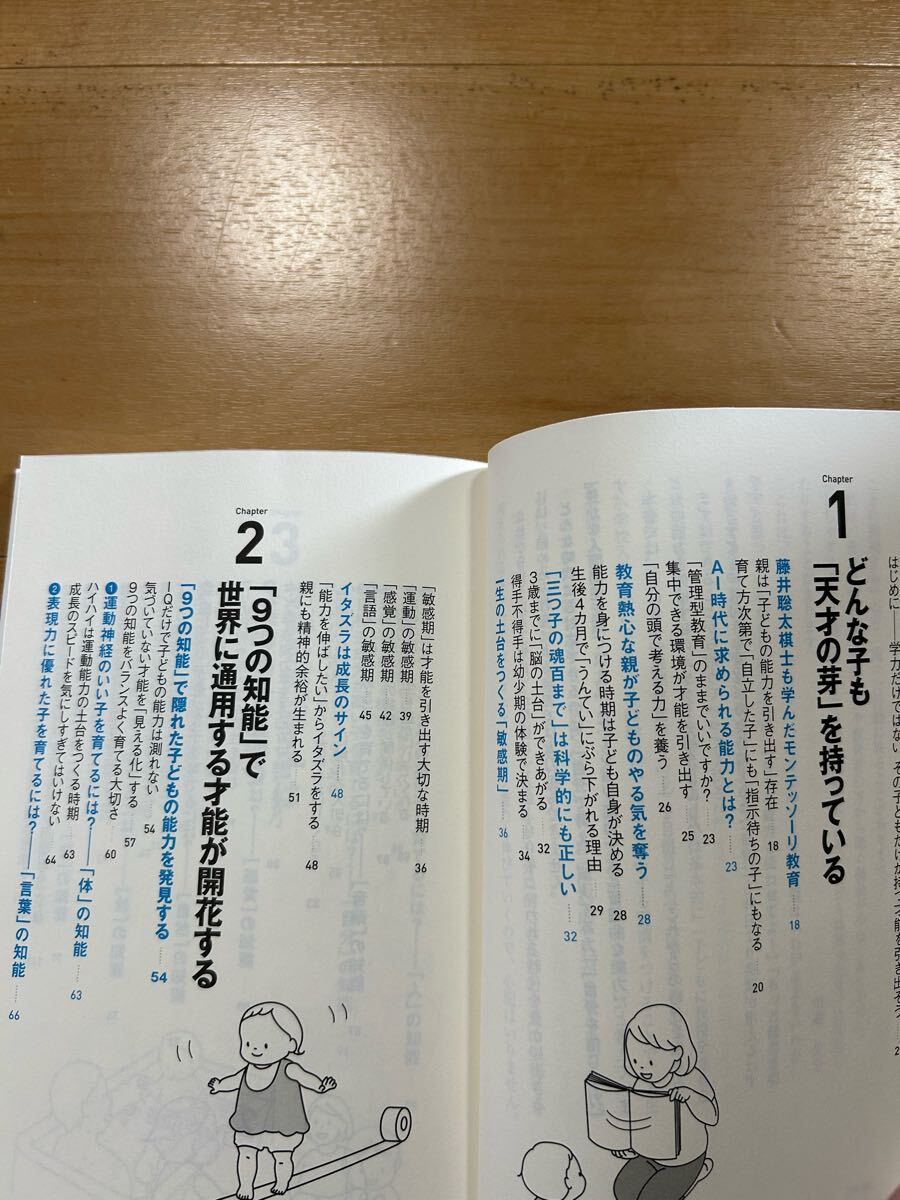 はじめに——学力だけではない その子どもだけが持つ才能を引き出そう
Chapter
1
どんな子も
「天才の芽」を持っている
藤井聡太棋士も学んだモンテッソーリ教育 …… 18
親は「子どもの能力を引き出す」存在 18
育て方次第で「自立した子」にも「指示待ちの子」にもなる 20
AI時代に求められる能力とは? …… 23
「管理型教育」のままでいいですか? 23
集中できる環境が才能を引き出す 25
「自分の頭で考える力」を養う 26
教育熱心な親が子どものやる気を奪う …… 28
能力を身につける時期は子ども自身が決める 28
生後4カ月で「うんてい」にぶら下がれる理由 29
「三つ子の魂百まで」は科学的にも正しい …… 32
3歳までに「脳の土台」ができあがる 32
得手不得手は幼少期の体験で決まる 34
一生の土台をつくる「敏感期」 …… 36
「敏感期」は才能を引き出す大切な時期 36
「運動」の敏感期 39
「感覚」の敏感期 42
「言語」の敏感期 45
イタズラは成長のサイン …… 48
「能力を伸ばしたい」からイタズラをする 48
親にも精神的余裕が生まれる 51
Chapter
2
「9つの知能」で
世界に通用する才能が開花する
「9つの知能」で隠れた子どもの能力を発見する …… 54
IQだけで子どもの能力は測れない 54
気づいていない才能を「見える化」する 57
9つの知能をバランスよく育てる大切さ 60
❶運動神経のいい子を育てるには?——「体」の知能 …… 63
ハイハイは運動能力の土台をつくる時期 63
成長のスピードを気にしすぎてはいけない 64
❷表現力に優れた子を育てるには?——「言葉」の知能 …… 66